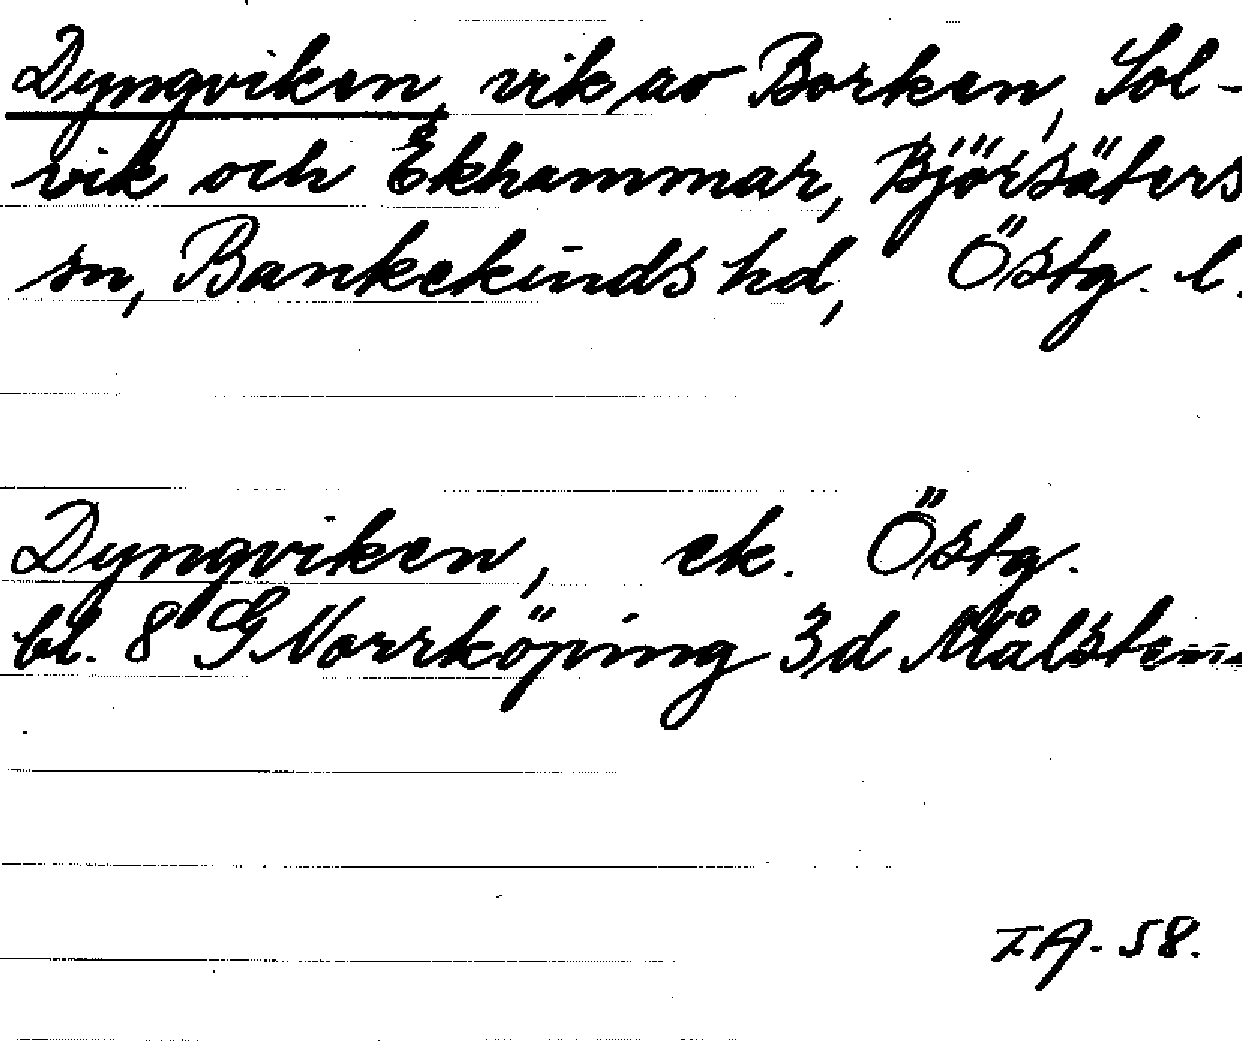 Dyngviken, vik av Borken, Sol-
vik och Ekhammar, Björsäters
sn, Bankekinds hd, Östg. l.
Dyngviken, ek. Östg.
bl. 8 G Norrköping 3d Målstena
IA-58.